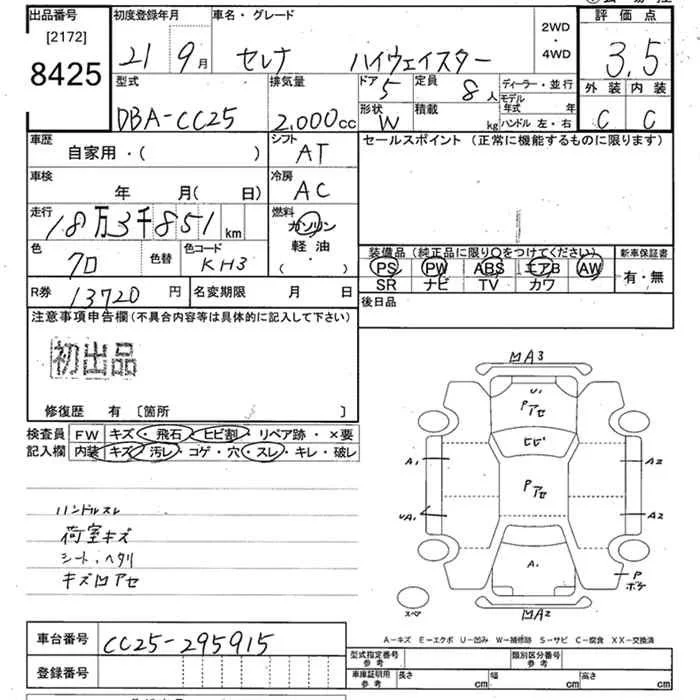 出品番号
[2172]
8425
初度登録年月
21 9月
車名・グレード
セレナ ハイウェイスター
2WD
・
4WD
評価点
3.5
外装 内装
C C
型式
DBA-CC25
排気量
2,000cc
ドア
5
定員
8人
形状
W
積載
kg
ディーラー・並行
モデル年式 年
ハンドル 左・右
車歴
自家用・( )
シフト
AT
セールスポイント (正常に機能するものに限ります)
車検
年 月( 日)
冷房
AC
走行
18万3千851km
燃料
ガソリン
軽油
( ・ )
色
クロ
色替
色コード
KH3
装備品 (純正品に限り○をつけてください)
PS PW ABS エアB AW
SR ナビ TV カワ
新車保証書
有・無
R券
13720円
名変期限 月 日
後日品
注意事項申告欄(不具合内容等は具体的に記入して下さい)
初出品
修復歴 有 〔箇所 〕
検査員
記入欄
FW キズ・飛石・ヒビ割・リペア跡・×要
内装 キズ・汚レ・コゲ・穴・スレ・キレ・破レ
ハンドルスレ
荷室キズ
シート・ヘタリ
キズ凹アセ
凹A3
U1
Pアセ
ヒビ
A1
A2
Pアセ
UA1
A2
A1
Pボケ
スペア
凹A2
A-キズ E-エクボ U-凹み W-補修跡 S-サビ C-腐食 XX-交換済
車台番号
CC25-295915
登録番号
型式指定番号
参考
類別区分番号
参考
車庫証明用
参考
長さ cm
幅 cm
高さ cm